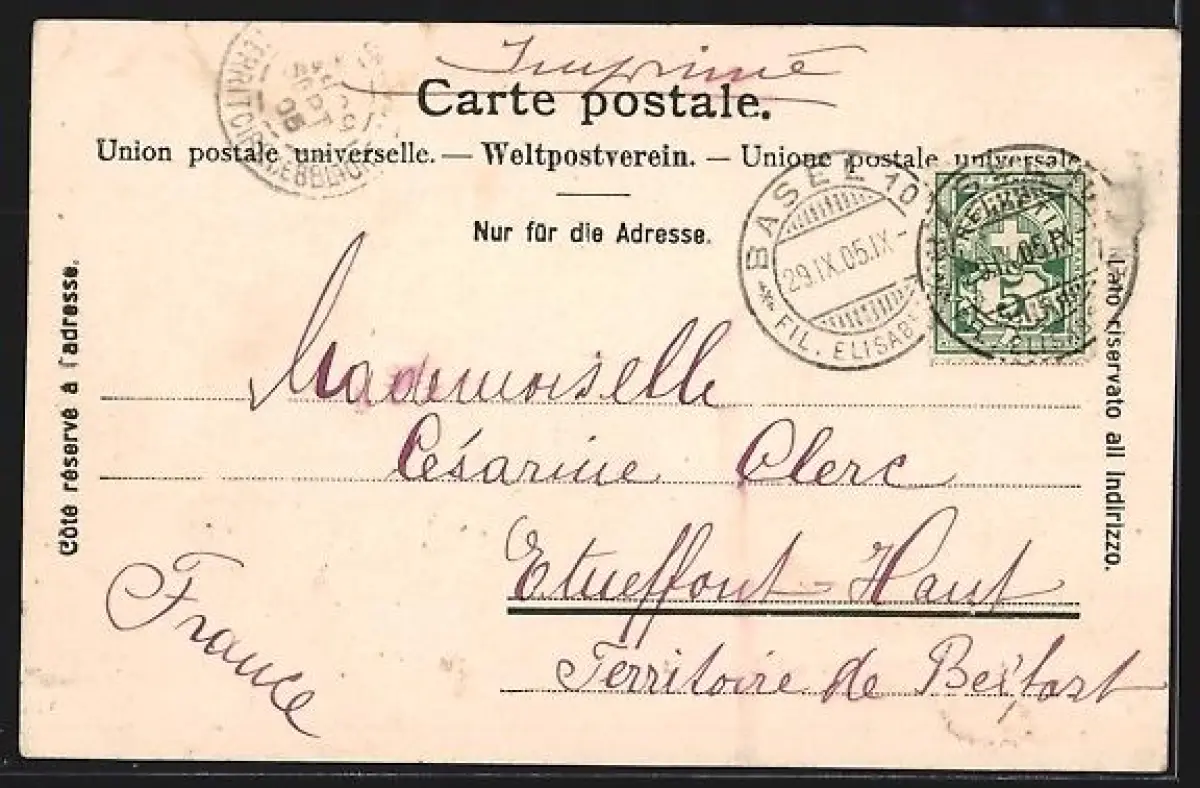 Imprimé
Carte postale.
Union postale universelle. — Weltpostverein. — Unione postale universale.
Nur für die Adresse.
Côté réservé à l'adresse.
Lato riservato all Indirizzo.
BASEL 10
29.IX.05.IX-
FIL. ELISABE
5
TERRITOIRE
05
Mademoiselle
Césarine Clerc
Etueffont-Haut
Territoire de Belfort
France